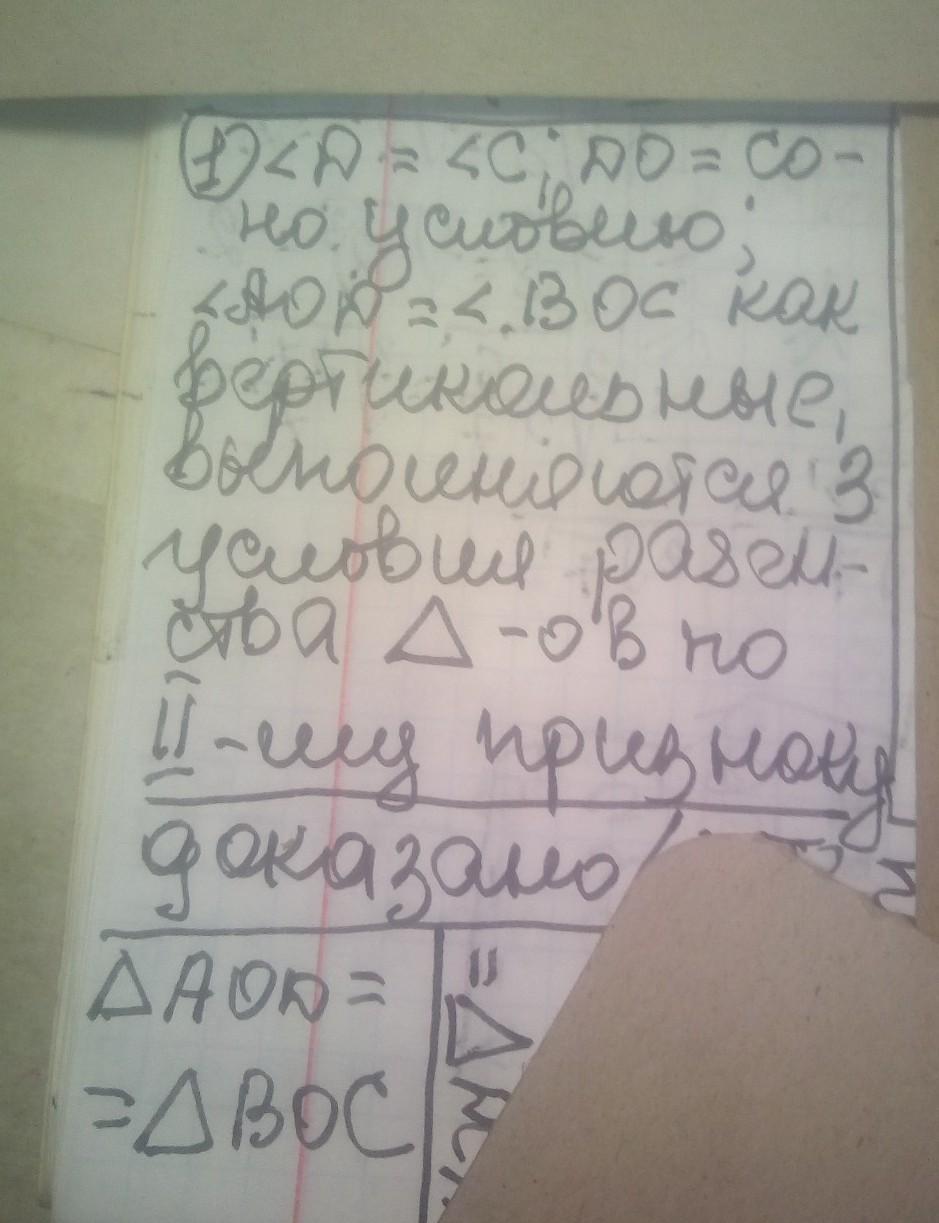 1) <D = <C; DO = CO -
по условию;
<AOD = <.BOC как
вертикальные,
выполняются 3
условия равен-
ства Δ -ов по
II-му признаку
доказано
ΔAOD =
= ΔBOC
= Δ